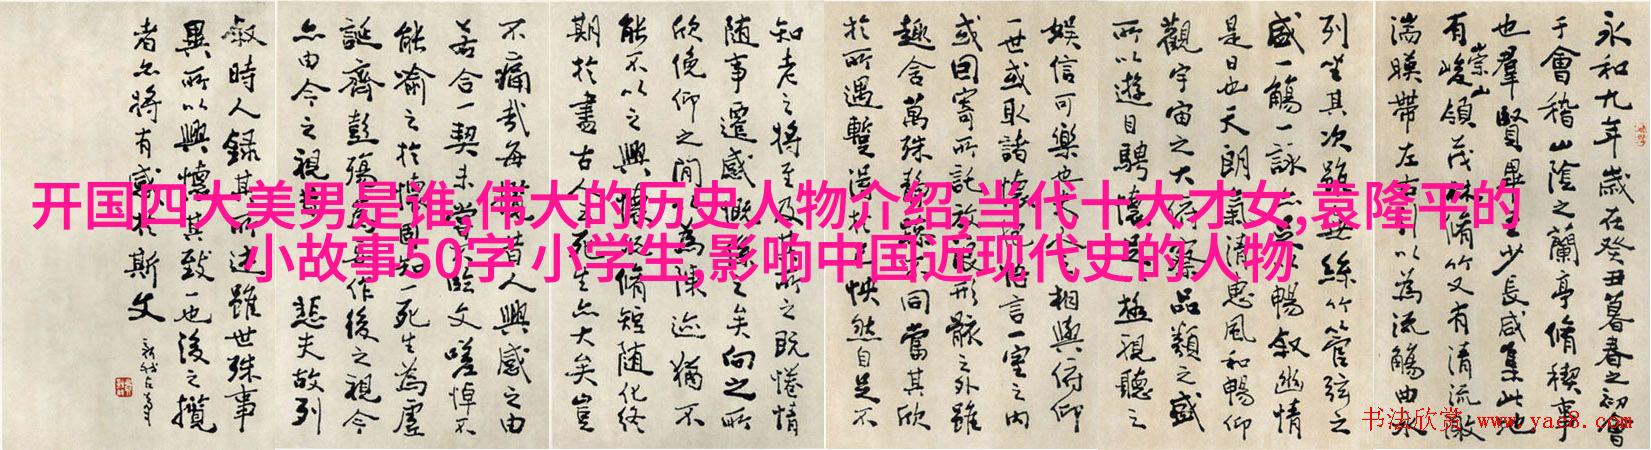 开国四大美男是谁,伟大的历史人物介绍,当代十大才女,袁隆平的
小故事50字 小学生,影响中国近现代史的人物
永和九年歲在癸丑暮春之初會
于會稽山陰之蘭亭脩稧事
也羣賢畢至少長咸集此地
有崇山峻領茂林脩竹又有清流激
湍暎帶左右引以為流觴曲水
列坐其次雖無絲竹管弦之
盛一觴一詠亦足以暢敘幽情
是日也天朗氣清惠風和暢仰
觀宇宙之大俯察品類之盛
所以遊目騁懷足以極視聽之
娛信可樂也夫人之相與俯仰
一世或取諸懷抱悟言一室之內
或因寄所託放浪形骸之外雖
趣舍萬殊靜躁不同當其欣
於所遇暫得於己怏然自足不
知老之將至及其所之既惓情
隨事遷感慨係之矣向之所
欣俛仰之間以為陳迹猶不
能不以之興懷況脩短隨化終
期於盡古人云死生亦大矣豈
不痛哉每攬昔人興感之由
若合一契未嘗不臨文嗟悼不
能喻之於懷固知一死生為虛
誕齊彭殤為妄作後之視今
亦由今之視昔悲夫故列
敘時人錄其所述雖世殊事
異所以興懷其致一也後之攬
者亦將有感於斯文
书法欣赏 www.yac8.com